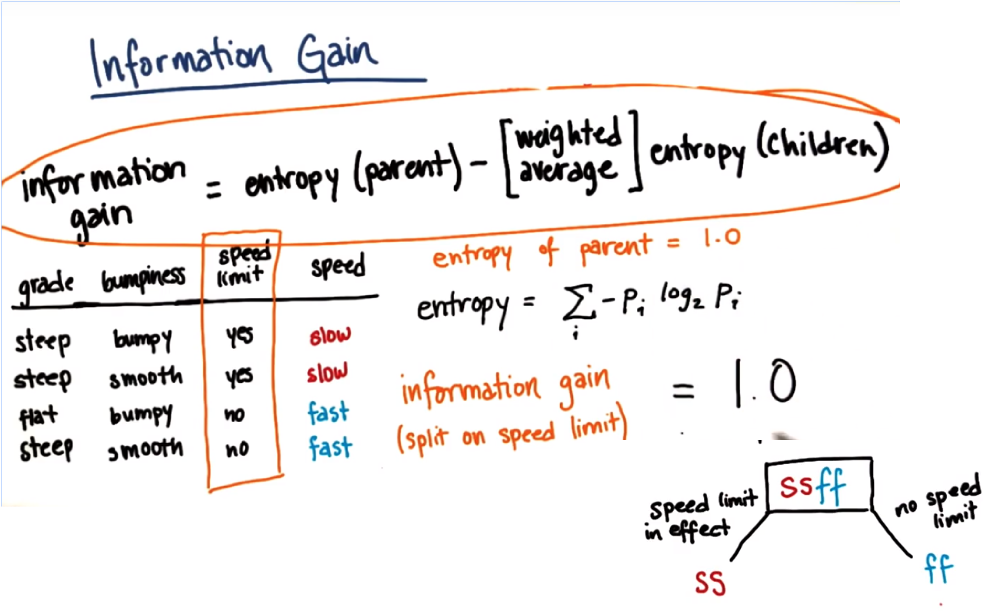 Information Gain
information gain = entropy (parent) - [weighted average] entropy (children)
grade bumpiness speed limit speed
steep bumpy yes slow
steep smooth yes slow
flat bumpy no fast
steep smooth no fast
entropy of parent = 1.0
entropy = Σ_i -P_i log₂ P_i
information gain = 1.0
(split on speed limit)
ssff
speed limit in effect
no speed limit
ss
ff